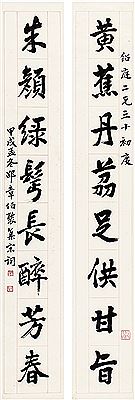 黄蕉丹荔足供甘旨
绍庭二兄三十初度
朱颜绿鬓长醉芳春
甲戌孟冬邓章伯敬集宋词